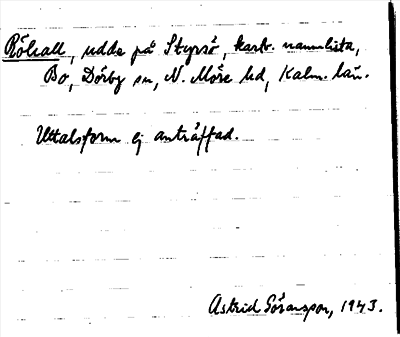 Rölsall, udde på Styrsö, kartv. namnlista,
Bo, Dörby sn, N. Möre hd, Kalm. län.
Uttalsform ej anträffad.
Astrid Göransson, 1943.